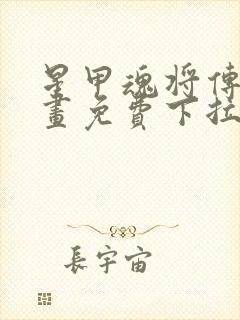 星甲魂将傳
畫免費下拉
長宇宙